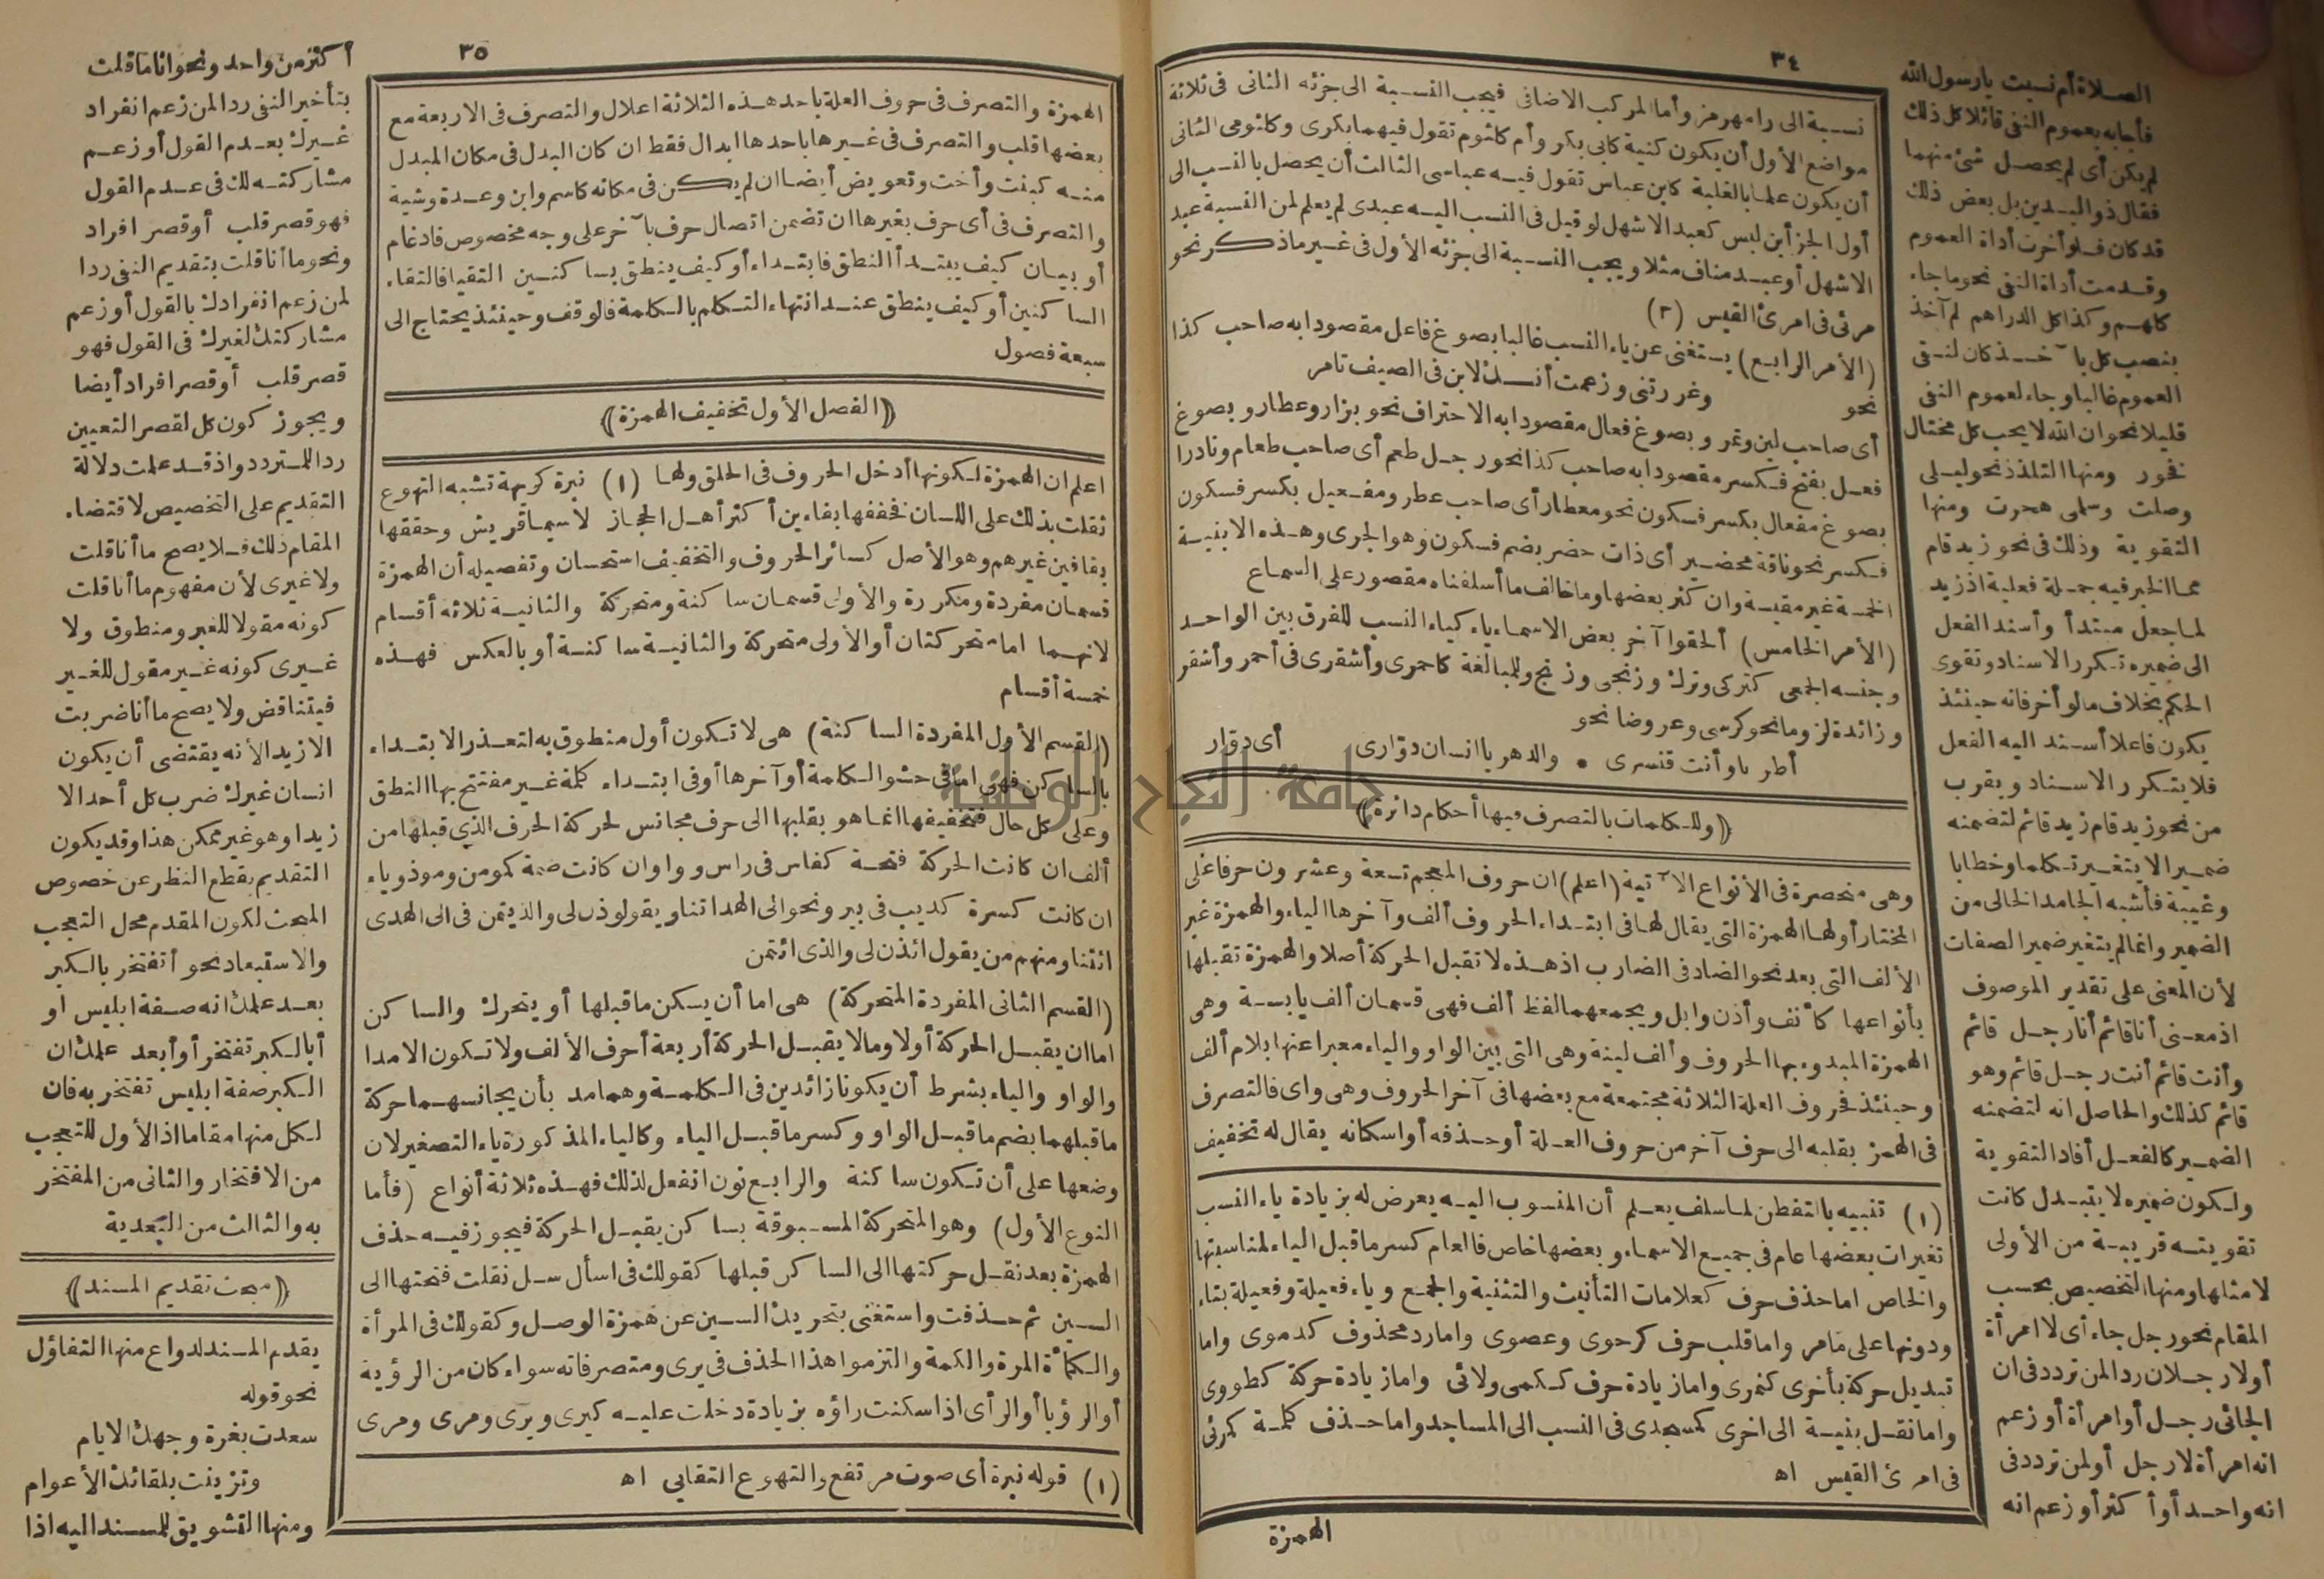 ٣٤
نسبة الى رامهرمز وأما المركب الاضافى فيجب النسبة الى جزئه الثانى فى ثلاثة
مواضع الأول أن يكون كنية كابى بكر وأم كلثوم تقول فيهما بكرى وكلثومى الثانى
أن يكون علما بالغلبة كابن عباس تقول فيه عباسى الثالث أن يحصل بالنسب الى
أول الجزأين لبس كعبد الاشهل لو قيل فى النسب اليه عبدى لم يعلم لمن النسبة عبد
الاشهل أو عبد مناف مثلا ويجب النسبة الى جزئه الأول فى غير ما ذكر نحو
مرئى فى امرئ القيس (٢)
(الأمر الرابع) يستغنى عن ياء النسب غالبا بصوغ فاعل مقصودا به صاحب كذا
نحو وغررتنى وزعمت أنــك لابن فى الصيف تامر
أى صاحب لبن وتمر وبصوغ فعال مقصودا به الاحتراف نحو بزار وعطار وبصوغ
فعل بفتح فكسر مقصودا به صاحب كذا نحو رجل طعم أى صاحب طعام ونادرا
بصوغ مفعال بكسر فسكون نحو معطار أى صاحب عطر ومفعيل بكسر فسكون
فكسر نحو ناقة محضير أى ذات حضر بضم فسكون وهو الجرى وهذه الابنية
الخمسة غير مقيسة وان كثر بعضها وما خالف ما أسلفناه مقصور على السماع
(الأمر الخامس) ألحقوا آخر بعض الاسماء ياء كياء النسب للفرق بين الواحد
وجنسه الجمعى كتركى وترك وزنجى وزنج وللمبالغة كاحمرى وأشقرى فى أحمر وأشقر
وزائدة لزوما نحو كرسى وعروضا نحو
أطربا وأنت قنسرى • والدهر بالانسان دوّارى أى دوّار
﴿وللكلمات بالتصرف فيها أحكام دائرة﴾
وهى منحصرة فى الأنواع الآتية (اعلم) ان حروف المعجم تسعة وعشرون حرفا على
المختار أولها الهمزة التى يقال لها فى ابتداء الحروف ألف وآخرها الياء والهمزة غير
الألف التى بعد نحو الضاد فى الضارب اذ هذه لا تقبل الحركة أصلا والهمزة تقبلها
بأنواعها كأنف وأذن وابل ويجمعهما لفظ ألف فهى قسمان ألف يابسة وهى
الهمزة المبدوء بها الحروف وألف لينة وهى التى بين الواو والياء معبرا عنها بلام ألف
وحينئذ فحروف العلة الثلاثة مجتمعة مع بعضها فى آخر الحروف وهى واى فالتصرف
فى الهمز بقلبه الى حرف آخر من حروف العلة أو حذفه أو اسكانه يقال له تخفيف
(١) تنبيه بالتفطن لما سلف يعلم أن المنسوب اليه يعرض له بزيادة ياء النسب
تغيرات بعضها عام فى جميع الاسماء وبعضها خاص فالعام كسر ما قبل الياء لمناسبتها
والخاص اما حذف حرف كعلامات التأنيث والتثنية والجمع وياء فعيلة وفعيلة بتاء
ودونها على ما مر واما قلب حرف كرحوى وعصوى واما رد محذوف كدموى واما
تبديل حركة بأخرى كنمرى واما زيادة حرف ككمى ولائى واما زيادة حركة كطووى
واما نقل بنية الى اخرى كمسجدى فى النسب الى المساجد واما حذف كلمة كمرئى
فى امرئ القيس اه
الهمزة
الصلاة أم نسيت يا رسول الله
فأجابه بعموم النفى قائلا كل ذلك
لم يكن أى لم يحصل شئ منهما
فقال ذو اليدين بل بعض ذلك
قد كان فلو أخرت أداة العموم
وقدمت أداة النفى نحو ما جاء
كلهم وكذا كل الدراهم لم آخذ
بنصب كل بآخذ كان لنفى
العموم غالبا وجاء لعموم النفى
قليلا نحو ان الله لا يحب كل مختال
فخور ومنها التلذذ نحو ليلى
وصلت وسلمى هجرت ومنها
التقوية وذلك فى نحو زيد قام
مما الخبر فيه جملة فعلية اذ زيد
لما جعل مبتدأ وأسند الفعل
الى ضميره تكرر الاسناد وتقوى
الحكم بخلاف ما لو أخر فانه حينئذ
يكون فاعلا أسند اليه الفعل
فلا يتكرر الاسناد ويقرب
من نحو زيد قام زيد قائم لتضمنه
ضميرا لا يتغير تكلما وخطابا
وغيبة فأشبه الجامد الخالى من
الضمير وانما لم يتغير ضمير الصفات
لأن المعنى على تقدير الموصوف
اذ معنى أنا قائم أنا رجل قائم
وأنت قائم أنت رجل قائم وهو
قائم كذلك والحاصل انه لتضمنه
الضمير كالفعل أفاد التقوية
ولكون ضميره لا يتبدل كانت
تقويته قريبة من الأولى
لا مثلها ومنها التخصيص بحسب
المقام نحو رجل جاء أى لا امرأة
أو لا رجلان ردا لمن تردد فى ان
الجائى رجل أو امرأة أو زعم
انه امرأة لا رجل أو لمن تردد فى
انه واحد أو أكثر أو زعم انه
٣٥
الهمزة والتصرف فى حروف العلة باحد هذه الثلاثة اعلال والتصرف فى الاربعة مع
بعضها قلب والتصرف فى غيرها باحدها ابدال فقط ان كان البدل فى مكان المبدل
منه كبنت وأخت وتعويض أيضا ان لم يكن فى مكانه كاسم وابن وعدة وشية
والتصرف فى أى حرف بغيرها ان تضمن اتصال حرف بآخر على وجه مخصوص فادغام
أو بيان كيف يبتدأ النطق فابتداء أو كيف ينطق بساكنين التقيا فالتقاء
الساكنين أو كيف ينطق عند انتهاء التكلم بالكلمة فالوقف وحينئذ يحتاج الى
سبعة فصول
﴿الفصل الأول تخفيف الهمزة﴾
اعلم ان الهمزة لكونها أدخل الحروف فى الحلق ولها (١) نبرة كريهة تشبه التهوع
ثقلت بذلك على اللسان فخففها بفاءين أكثر أهل الحجاز لا سيما قريش وحققها
بقافين غيرهم وهو الأصل كسائر الحروف والتخفيف استحسان وتفصيله أن الهمزة
قسمان مفردة ومكررة والأولى قسمان ساكنة ومتحركة والثانية ثلاثة أقسام
لانهما اما متحركتان أو الأولى متحركة والثانية ساكنة أو بالعكس فهذه
خمسة أقسام
(القسم الأول المفردة الساكنة) هى لا تكون أول منطوق به لتعذر الابتداء
بالساكن فهى اما فى حشو الكلمة أو آخرها أو فى ابتداء كلمة غير مفتتح بها النطق
وعلى كل حال فتخفيفها انما هو بقلبها الى حرف مجانس لحركة الحرف الذى قبلها من
ألف ان كانت الحركة فتحة كفاس فى راس وواو ان كانت ضمة كمومن وموذ وياء
ان كانت كسرة كذيب فى بير ونحو الى الهداتنا ويقولوذن لى والذيتمن فى الى الهدى
ائتنا ومنهم من يقول ائذن لى والذى ائتمن
(القسم الثانى المفردة المتحركة) هى اما أن يسكن ما قبلها أو يتحرك والساكن
اما ان يقبل الحركة أولا وما لا يقبل الحركة أربعة أحرف الألف ولا تكون الا مدا
والواو والياء بشرط أن يكونا زائدين فى الكلمة وهما مد بأن يجانسهما حركة
ما قبلهما بضم ما قبل الواو وكسر ما قبل الياء وكالياء المذكورة ياء التصغير لان
وضعها على أن تكون ساكنة والرابع نون انفعل لذلك فهذه ثلاثة أنواع (فأما
النوع الأول) وهو المتحركة المسبوقة بساكن يقبل الحركة فيجوز فيه حذف
الهمزة بعد نقل حركتها الى الساكن قبلها كقولك فى اسأل سل نقلت فتحتها الى
السين ثم حذفت واستغنى بتحريك السين عن همزة الوصل وكقولك فى المرأة
والكمأة المرة والكمة والتزموا هذا الحذف فى يرى ومتصرفاته سواء كان من الرؤية
أو الرؤيا أو الرأى اذا سكنت راؤه بزيادة دخلت عليه كيرى ويرى ومرى ومرى
(١) قوله نبرة أى صوت مرتفع والتهوع التقايى اه
أكثر من واحد ونحو انا ما قلت
بتأخير النفى ردا لمن زعم انفراد
غيرك بعدم القول أو زعم
مشاركته لك فى عدم القول
فهو قصر قلب أو قصر افراد
ونحو ما أنا قلت بتقديم النفى ردا
لمن زعم انفرادك بالقول أو زعم
مشاركتك لغيرك فى القول فهو
قصر قلب أو قصر افراد أيضا
ويجوز كون كل لقصر التعيين
ردا للمتردد واذ قد علمت دلالة
التقديم على التخصيص لاقتضاء
المقام ذلك فلا يصح ما أنا قلت
ولا غيرى لأن مفهوم ما أنا قلت
كونه مقولا للغير ومنطوق ولا
غيرى كونه غير مقول للغير
فيتناقض ولا يصح ما أنا ضربت
الا زيدا لأنه يقتضى أن يكون
انسان غيرك ضرب كل أحد الا
زيدا وهو غير ممكن هذا وقد يكون
التقديم بقطع النظر عن خصوص
المبحث لكون المقدم محل التعجب
والاستبعاد نحو أتفتخر بالكبر
بعد علمك انه صفة ابليس او
أبالكبر تفتخر أو أبعد علمك ان
الكبر صفة ابليس تفتخر به فان
لكل منها مقاما اذ الأول للتعجب
من الافتخار والثانى من المفتخر
به والثالث من البعدية
﴿مبحث تقديم المسند﴾
يقدم المسند لدواع منها التفاؤل
نحو قوله
سعدت بغرة وجهك الايام
وتزينت بلقائك الأعوام
ومنها التشويق للمسند اليه اذا
جامعة النجاح الوطنية